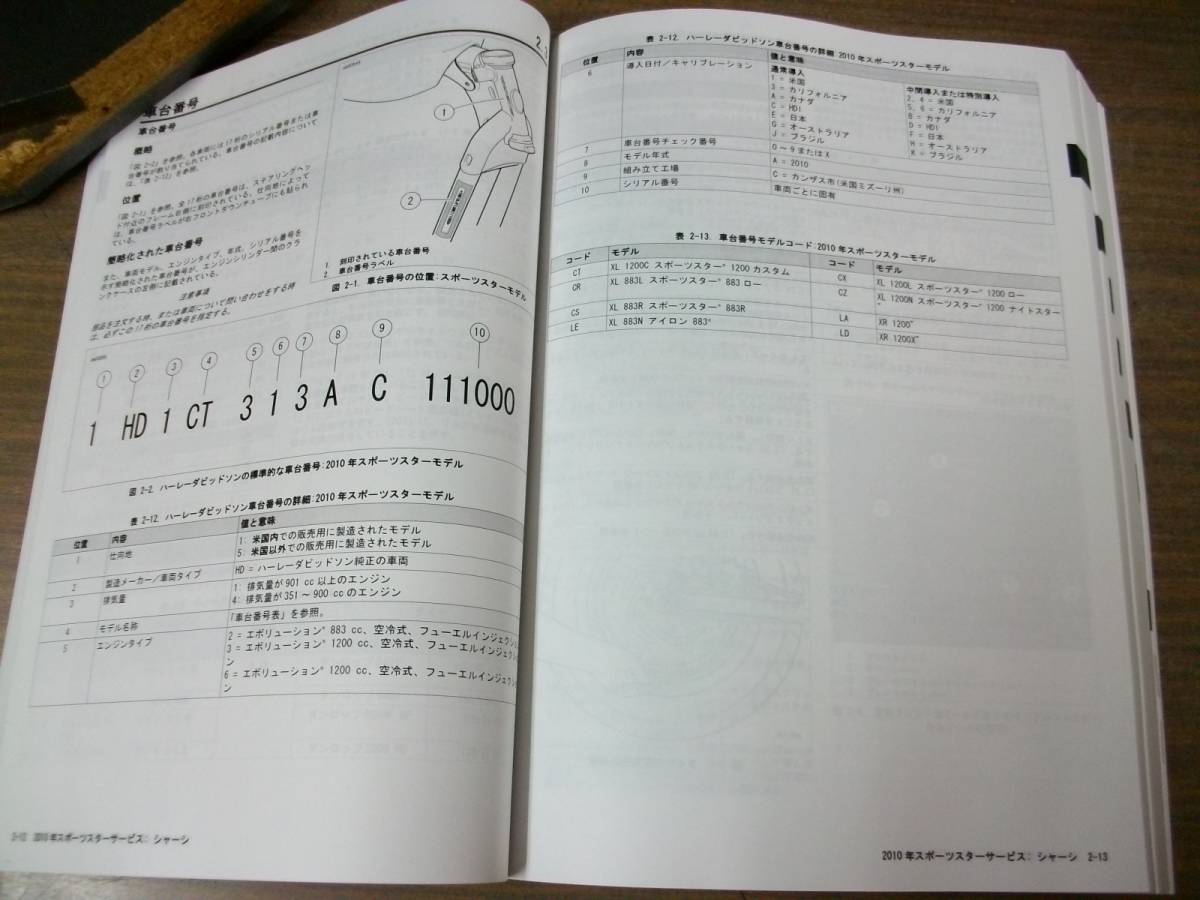 2.
車台番号
車台番号
概略
「図 2-2」を参照。各車両には17桁のシリアル番号または車
台番号が割り当てられている。車台番号の記載内容について
は、「表 2-12」を参照。
位置
「図 2-1」を参照。全17桁の車台番号は、ステアリングヘッ
ド付近のフレーム右側に刻印されている。仕向地によって
は、車台番号ラベルが右フロントダウンチューブにも貼られ
ている。
簡略化された車台番号
また、車両モデル、エンジンタイプ、年式、シリアル番号を
示す簡略化された車台番号が、エンジンシリンダー間のクラ
ンクケースの左側に記載されている。
注意事項
部品を注文する時、または車両について問い合わせをする時
は、必ずこの17桁の車台番号を指定する。
1
2
1. 刻印されている車台番号
2. 車台番号ラベル
図 2-1. 車台番号の位置: スポーツスターモデル
1 2 3 4 5 6 7 8 9 10
1 HD 1 CT 3 1 3 A C 111000
図 2-2. ハーレーダビッドソンの標準的な車台番号: 2010 年スポーツスターモデル
表 2-12. ハーレーダビッドソン車台番号の詳細: 2010 年スポーツスターモデル
位置 内容 値と意味
1 仕向地 1: 米国内での販売用に製造されたモデル
5: 米国以外での販売用に製造されたモデル
2 製造メーカー/車両タイプ HD = ハーレーダビッドソン純正の車両
3 排気量 1: 排気量が 901 cc 以上のエンジン
4: 排気量が 351 ~ 900 cc のエンジン
4 モデル名称 「車台番号表」を参照。
5 エンジンタイプ 2 = エボリューション® 883 cc、空冷式、フューエルインジェクション
3 = エボリューション® 1200 cc、空冷式、フューエルインジェクショ
ン
6 = エボリューション® 1200 cc、空冷式、フューエルインジェクショ
ン
2-12 2010 年スポーツスターサービス: シャーシ
表 2-12. ハーレーダビッドソン車台番号の詳細: 2010 年スポーツスターモデル
位置 内容 値と意味
6 導入日付/キャリブレーション 通常導入 中間導入または特別導入
1 = 米国 2, 4 = 米国
3 = カリフォルニア 5, 6 = カリフォルニア
A = カナダ B = カナダ
C = HDI D = HDI
E = 日本 F = 日本
G = オーストラリア H = オーストラリア
J = ブラジル K = ブラジル
7 車台番号チェック番号 0 ~ 9 または X
8 モデル年式 A = 2010
9 組み立て工場 C = カンザス市 (米国ミズーリ州)
10 シリアル番号 車両ごとに固有
表 2-13. 車台番号モデルコード: 2010 年スポーツスターモデル
コード モデル コード モデル
CT XL 1200C スポーツスター® 1200 カスタム CX XL 1200L スポーツスター® 1200 ロー
CR XL 883L スポーツスター® 883 ロー CZ XL 1200N スポーツスター® 1200 ナイトスター
™
CS XL 883R スポーツスター® 883R LA XR 1200™
LE XL 883N アイロン 883™ LD XR 1200X™
2010 年スポーツスターサービス: シャーシ 2-13